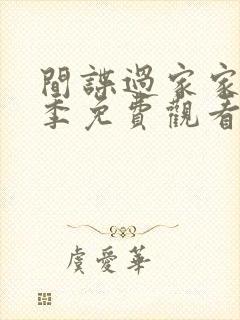 間諜過家家
季免費觀看
虞愛華